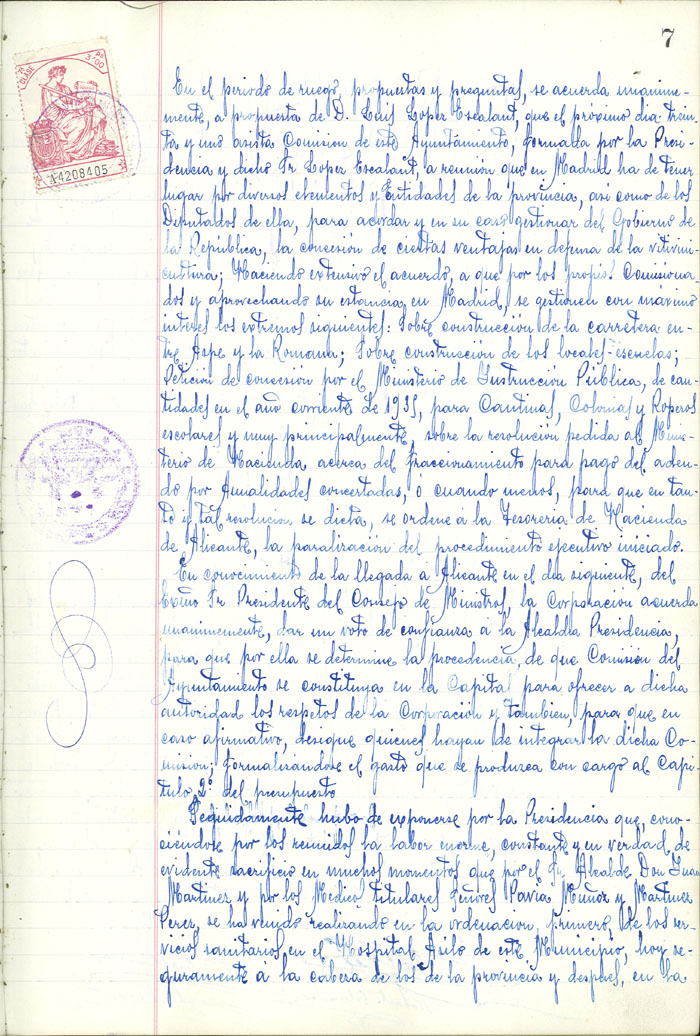 7
CLASE 8ª
3'00 Pts
A4208405
En el periodo de ruegos, propuestas y preguntas, se acuerda unanime-
mente, a propuesta de D. Luis Lopez Escalant, que el próximo dia trein-
ta y uno asista Comision de este Ayuntamiento, formada por la Presi-
dencia y dicho Sr Lopez Escalant, a reunion que en Madrid ha de tener
lugar por diversos elementos y Entidades de la provincia, asi como de los
Diputados de ella, para acordar y en su caso gestionar del Gobierno de
la Republica, la concesion de ciertas ventajas en defensa de la vitivini-
cultura; Haciendo extensivo el acuerdo, a que por los propios Comisiona-
dos y aprovechando su estancia en Madrid, se gestionen con máximo
interes los extremos siguientes: Sobre construccion de la carretera en-
tre Aspe y la Romana; Sobre construccion de los locales-escuelas;
Peticion de concesion por el Ministerio de Instruccion Pública, de can-
tidades en el año corriente de 1935, para Cantinas, Colonias y Roperos
escolares y muy principalmente, sobre la resolucion pedida al Minis-
terio de Hacienda acerca del fraccionamiento para pago del adeu-
do por Anualidades concertadas, ó cuando menos, para que en tan-
to y tal resolucion se dicta, se ordene á la Tesoreria de Hacienda
de Alicante, la paralizacion del procedimiento ejecutivo iniciado.
En conocimiento de la llegada a Alicante en el dia siguiente, del
Excmo Sr Presidente del Consejo de Ministros, la Corporacion acuerda
unanimemente, dar un voto de confianza á la Alcaldia Presidencia,
para que por ella se determine la procedencia, de que Comision del
Ayuntamiento se constituya en la Capital para ofrecer a dicha
autoridad los respetos de la Corporacion y tambien, para que en
caso afirmativo, designe quienes hayan de integrar la dicha Co-
mision; formalizandose el gasto que se produzca con cargo al Capi-
tulo 2º del presupuesto
Seguidamente hubo de exponerse por la Presidencia que, cono-
ciéndose por los reunidos la labor enorme, constante y en verdad de
evidente sacrificio en muchos momentos que por el Sr Alcalde Don Juan
Martinez y por los Medicos titulares Señores Pavia Muñoz y Martinez
Perez, se ha venido realizando en la ordenacion, primero, de los ser-
vicios sanitarios en el Hospital Asilo de este Municipio, hoy se-
guramente á la cabeza de los de la provincia y despues, en la